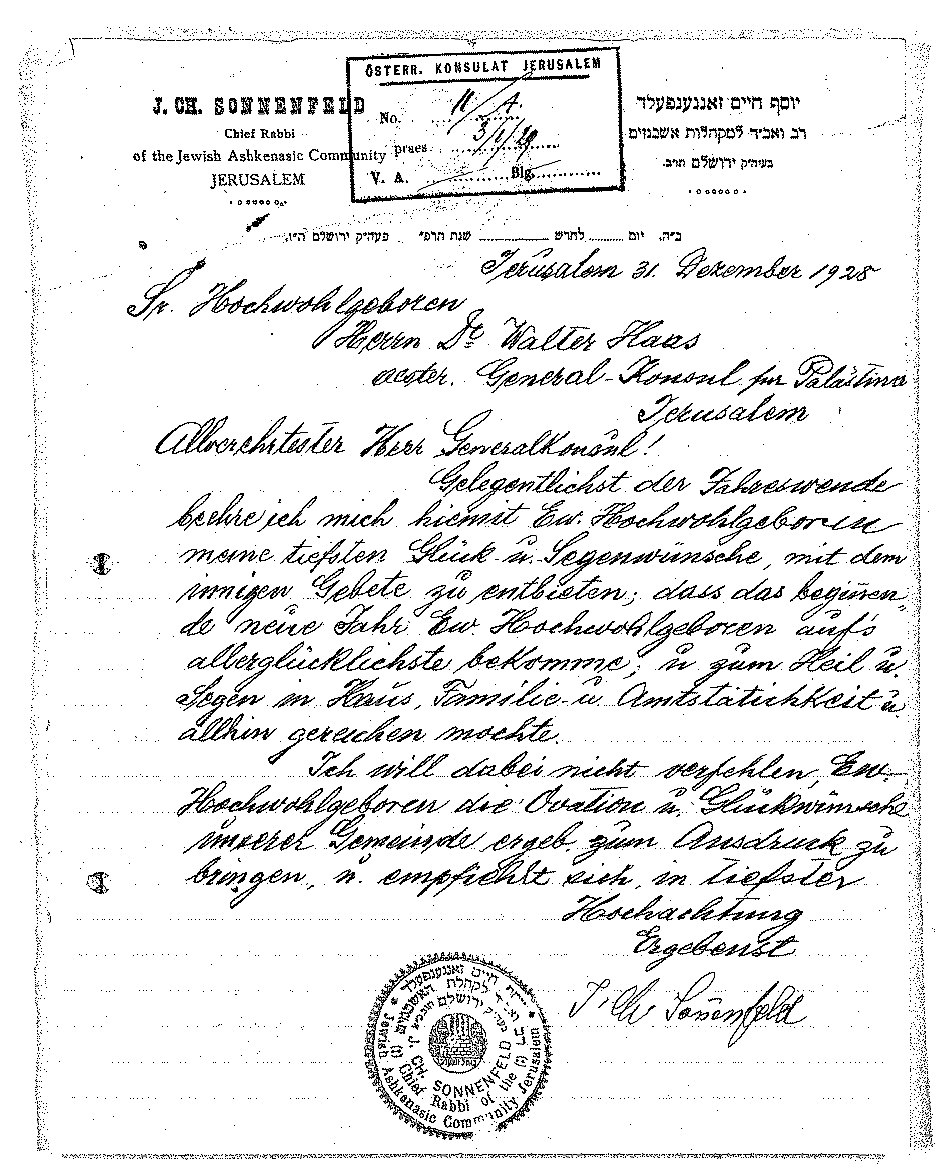 ÖSTERR. KONSULAT JERUSALEM
No. 11/A.
praes. 3/1/29
V. A. Blg.
J. CH. SONNENFELD
Chief Rabbi
of the Jewish Ashkenasic Community
JERUSALEM
יוסף חיים זאננענפעלד
רב ואב״ד למקהלות אשכנזים
בעיה״ק ירושלם תוב״ב.
ב״ה, יום לחדש שנת תרפ״ פעה״ק ירושלם ת״ו.
Jerusalem 31. Dezember 1928
Sr. Hochwohlgeboren
Herrn Dr. Walter Haas
oester. General-Konsul fur Palästina
Jerusalem
Allverehrtester Herr Generalkonsul!
Gelegentlichst der Jahreswende
beehre ich mich hiemit Ew. Hochwohlgeboren
meine tiefsten Glück u. Segenwünsche, mit dem
innigen Gebete zu entbieten; dass das beginnen„
de neue Jahr Ew. Hochwohlgeboren auf's
allerglücklichste bekomme; u zum Heil u.
Segen in Haus, Familie u. Amtstätichkeit u.
allhin gereichen mochte.
Ich will dabei nicht verfehlen, Ew.
Hochwohlgeboren die Ovation u. Glückwünsche
unserer Gemeinde ergeb. zum Ausdruck zu
bringen, u. empfiehlt sich, in tiefster
Hochachtung
Ergebenst
J. Ch. Sonnenfeld
יוסף חיים זאננענפעלד
רב ואב״ד לקהלת האשכנזים
בעיה״ק ירושלים
J. CH. SONNENFELD
Chief Rabbi of the
Jewish Ashkenasic Community Jerusalem